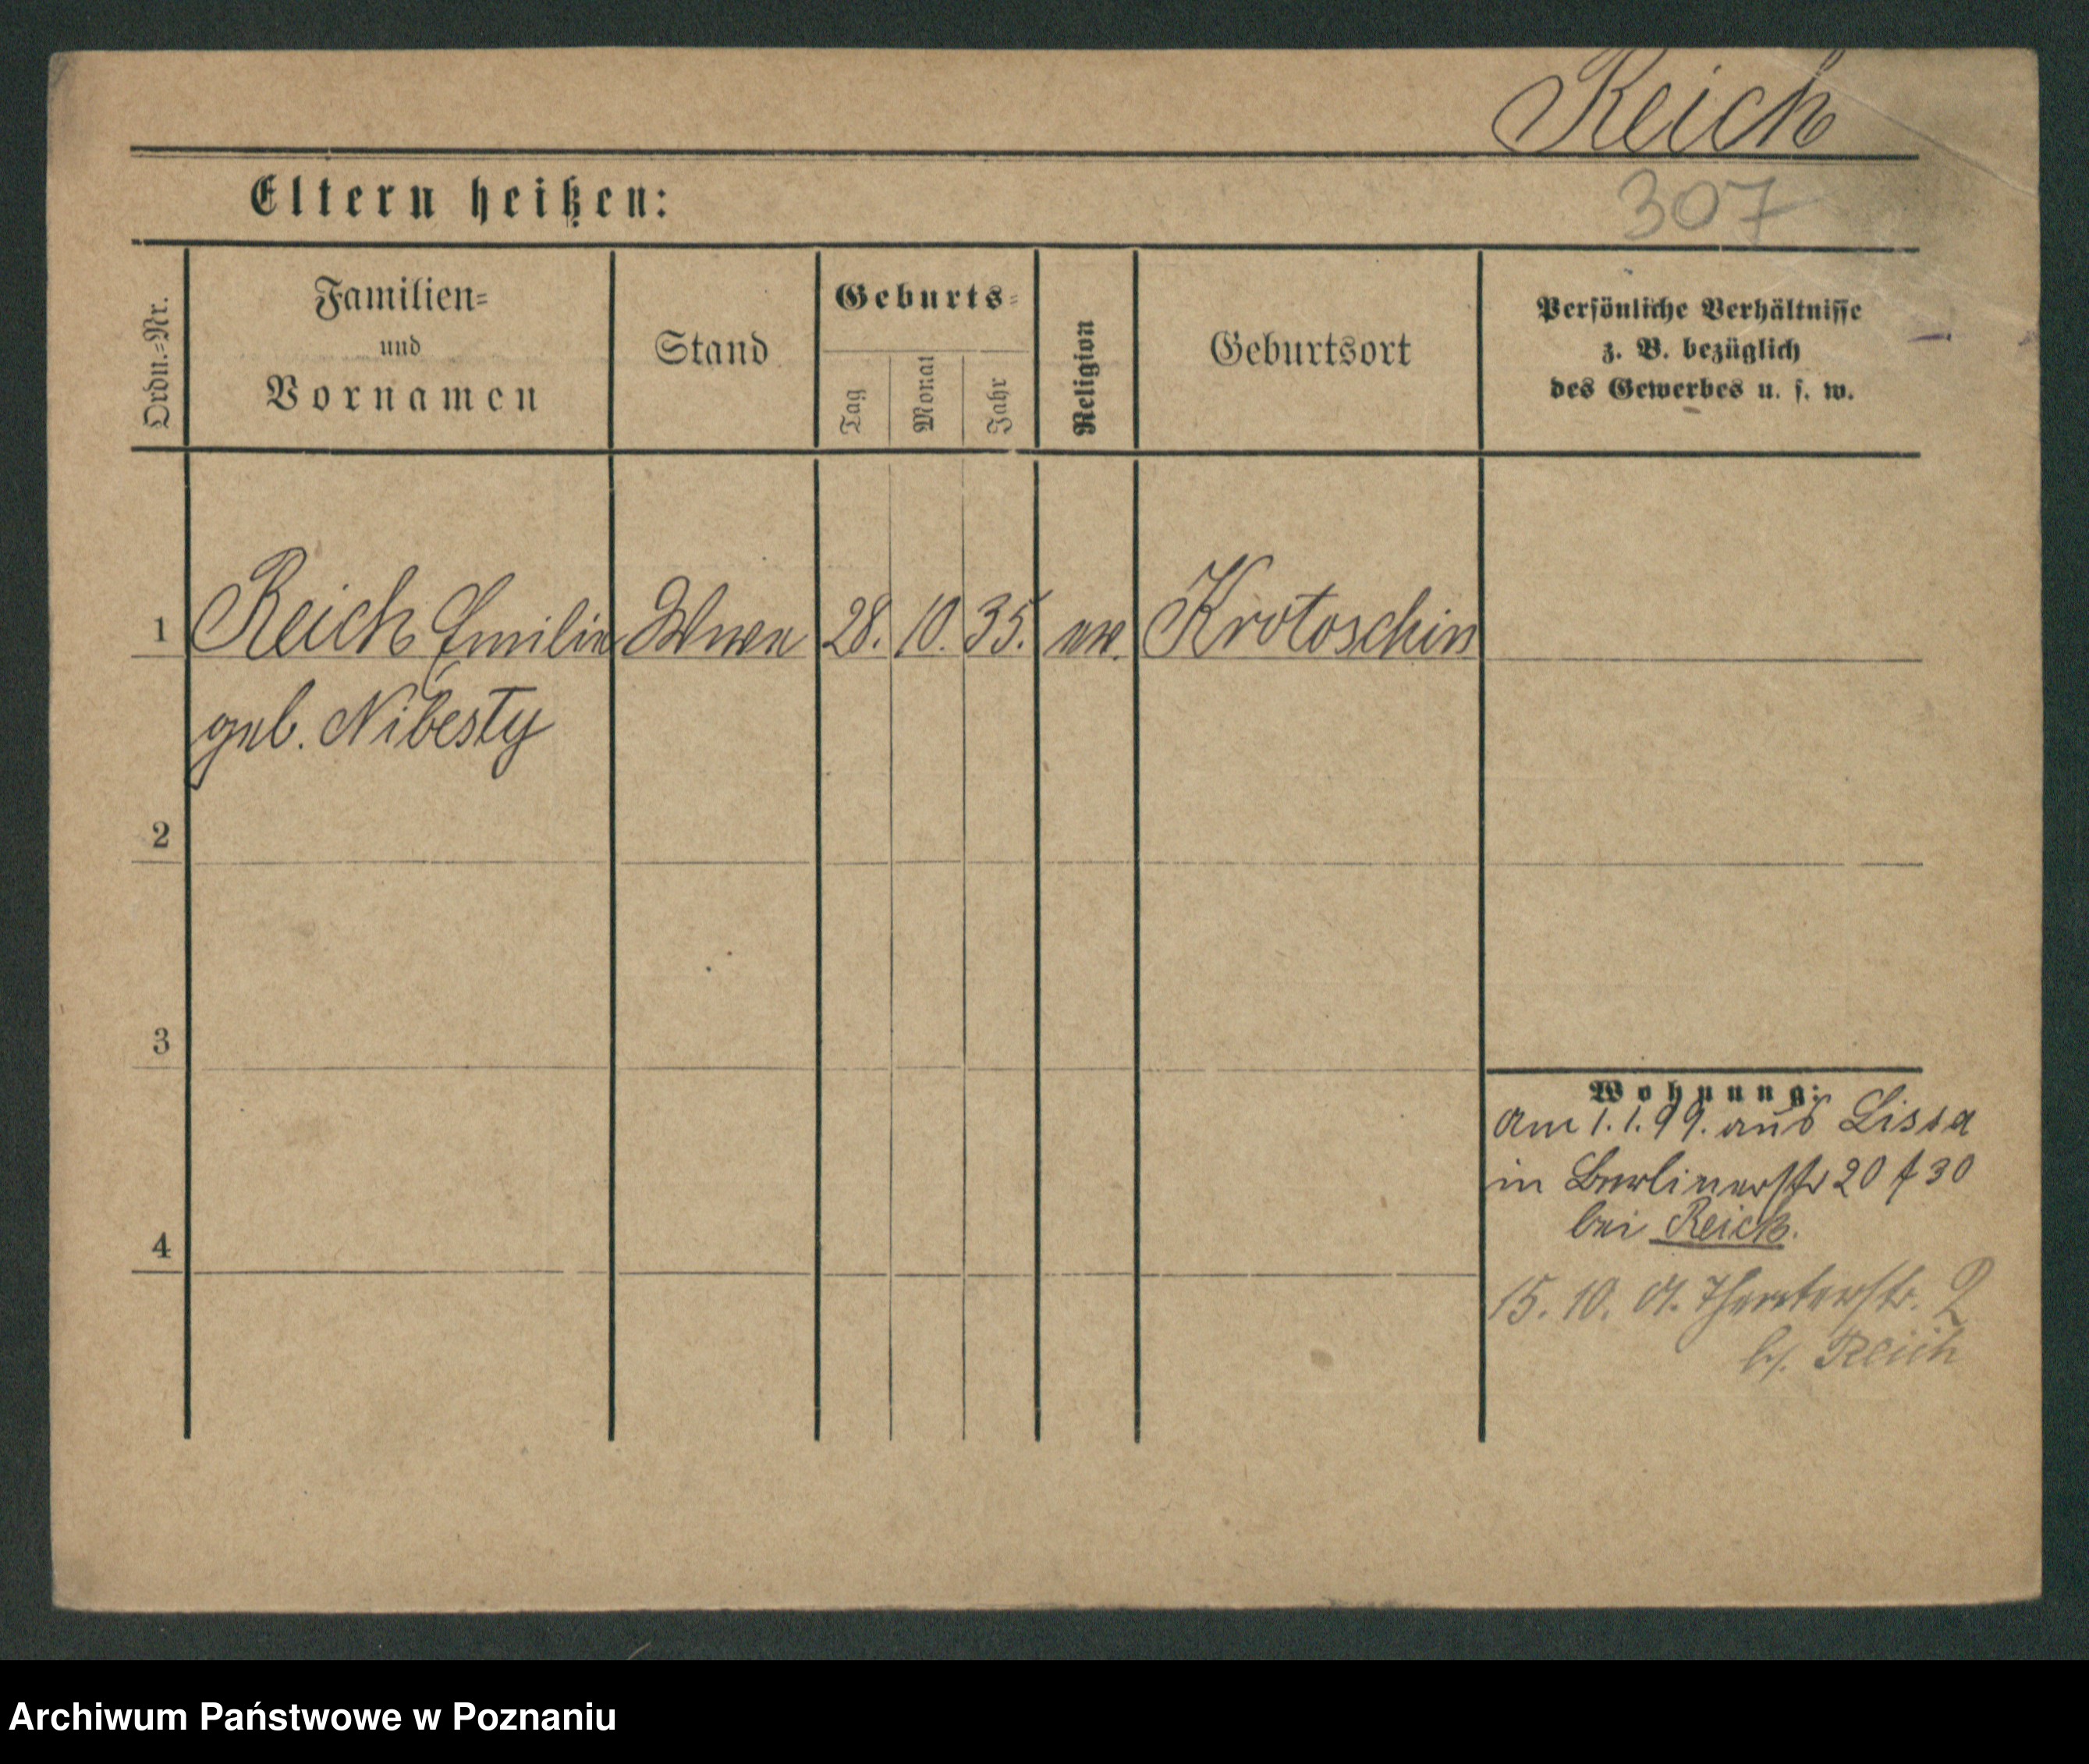 Reich
Eltern heißen:
307
Ordn.=Nr.
Familien=
und
Vornamen
Stand
Geburts=
Tag
Monat
Jahr
Religion
Geburtsort
Persönliche Verhältnisse
z. B. bezüglich
des Gewerbes u. s. w.
1 Reich Emilie Wwe 28. 10. 35. ev. Krotoschin
geb. Nibesty
2
3
Wohnung:
am 1.1.99. aus Lissa
in Berlinerstr 20 30
bei Reich.
4
15. 10. 01. Theaterstr. 2
b/. Reich
Archiwum Państwowe w Poznaniu